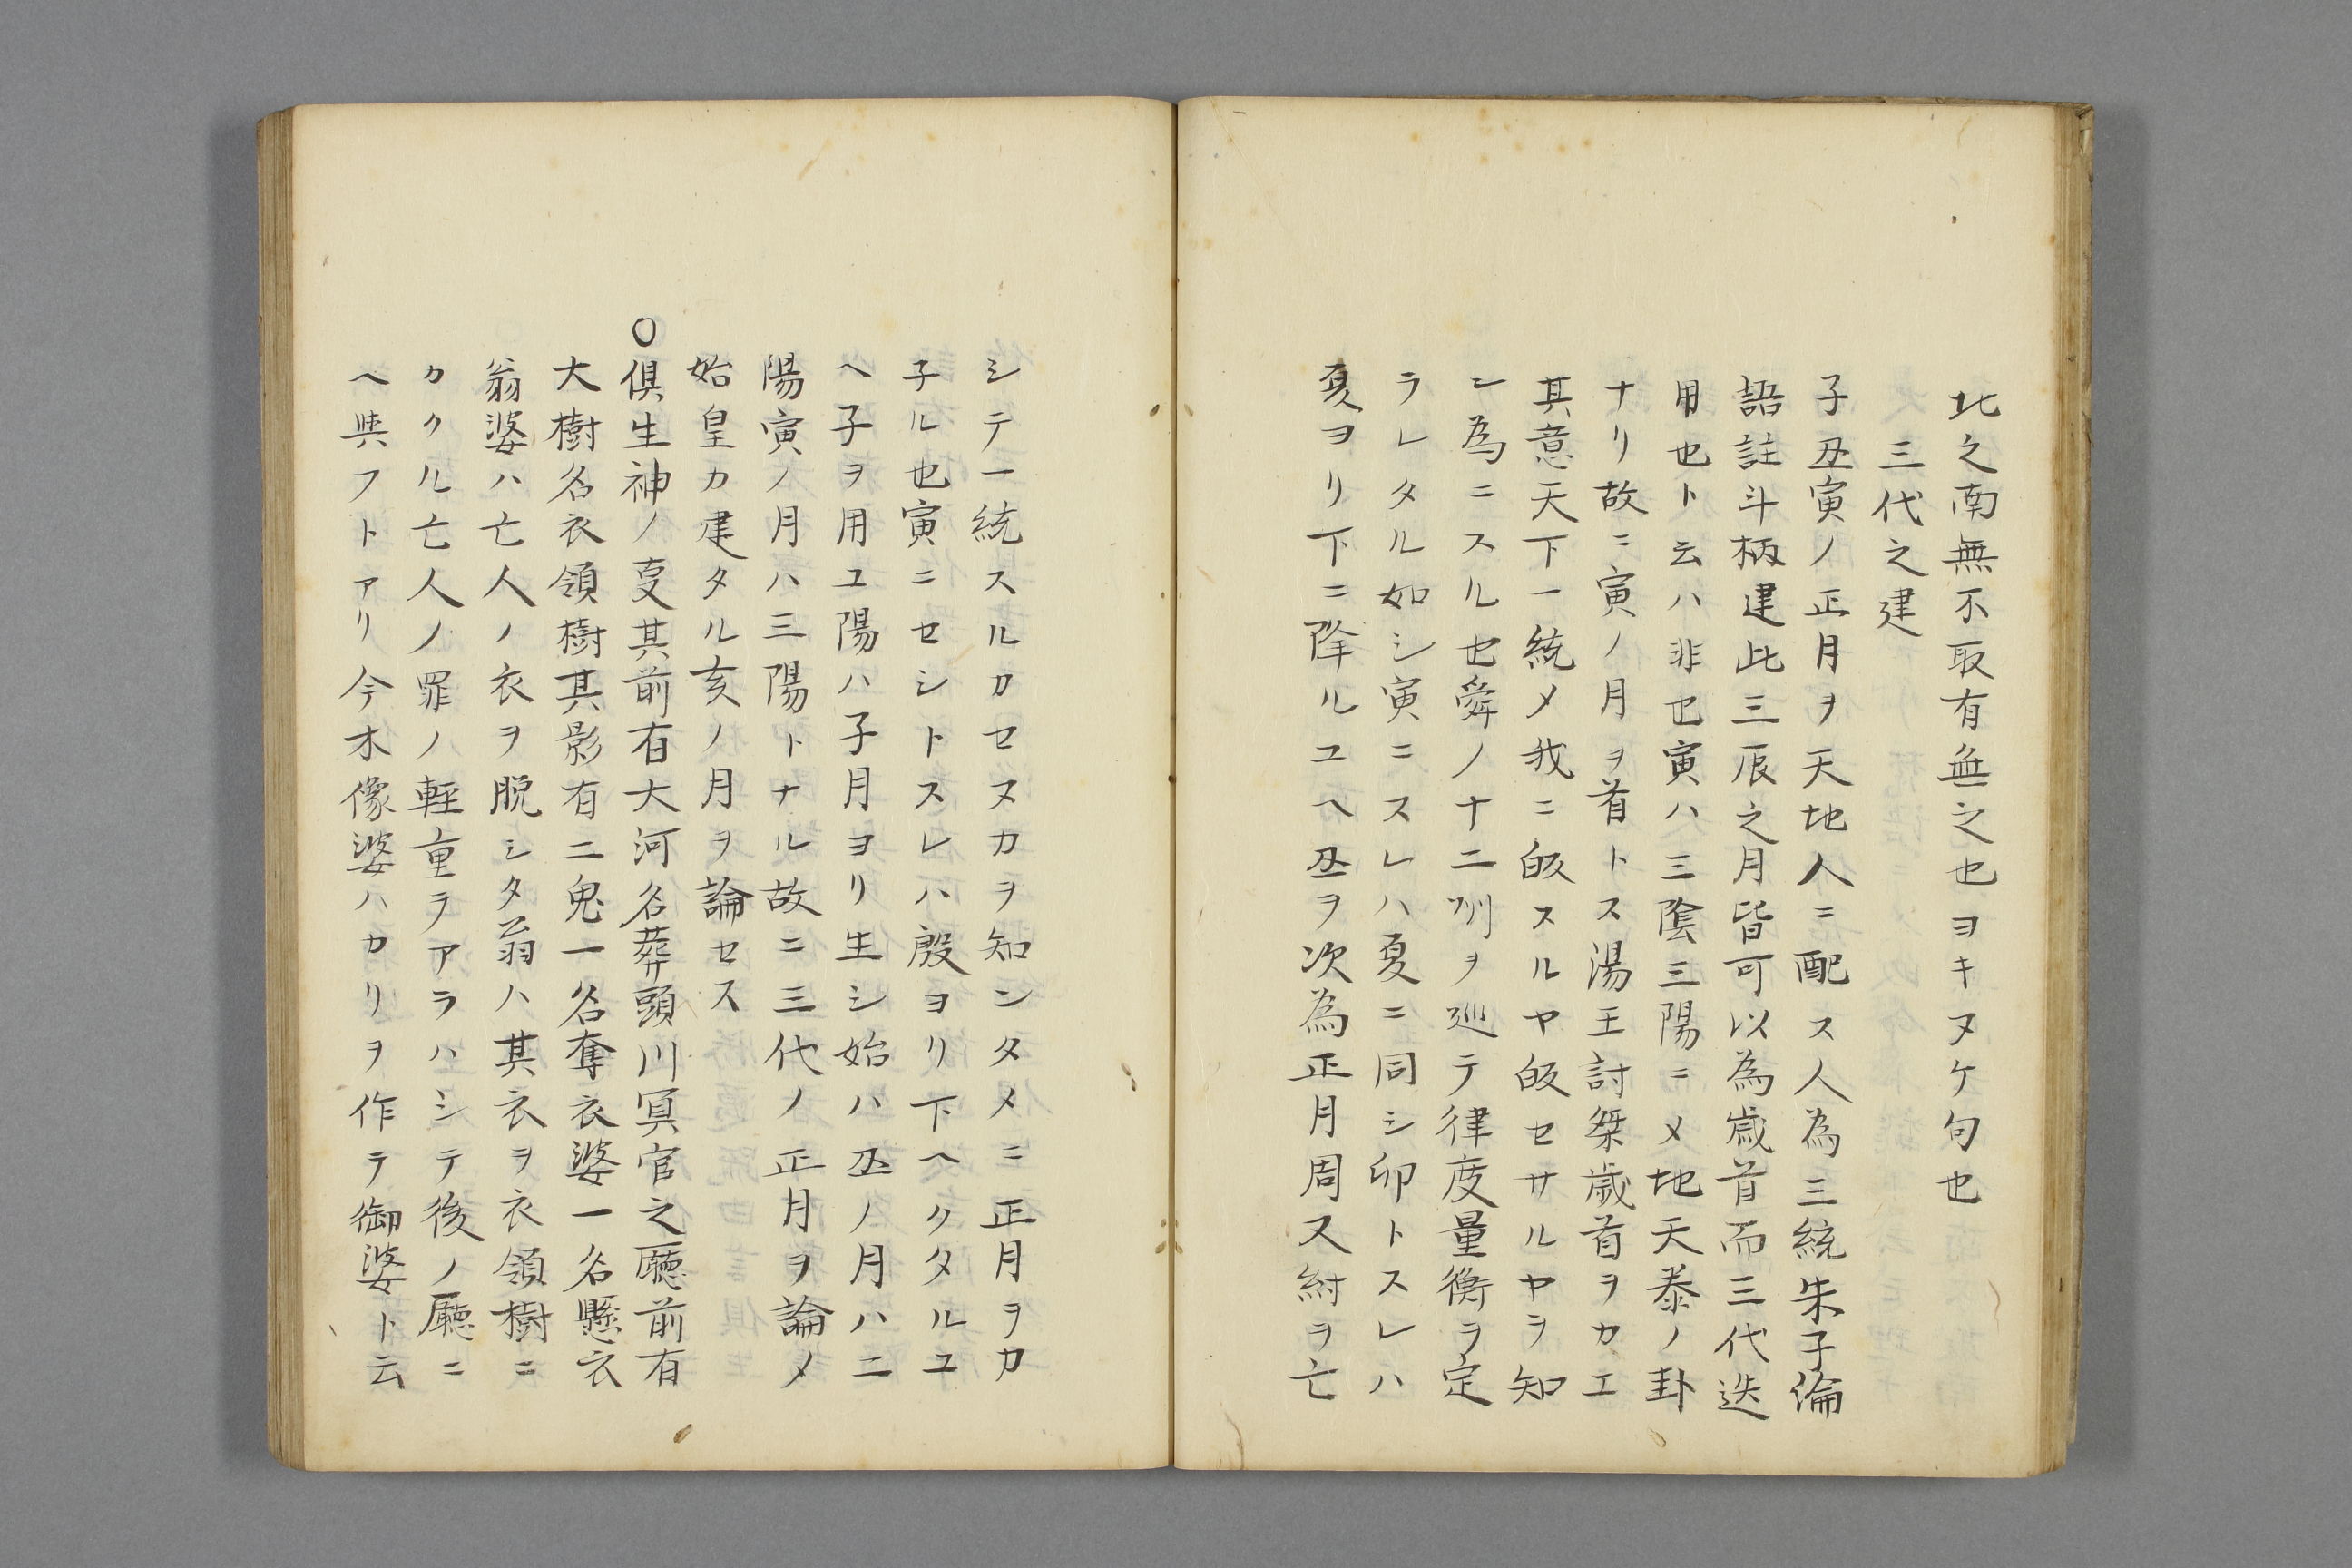 北之南無不取有無之也ヨキヌケ句也
三代之建
子丑寅ノ正月ヲ天地人ニ配ス人為三統朱子倫
語註斗柄建此三辰之月皆可以為歳首而三代迭
用也ト云ハ非也寅ハ三陰三陽ニメ地天泰ノ卦
ナリ故ニ寅ノ月ヲ首トス湯王討桀歳首ヲカエ
其意天下一統メ我ニ皈スルヤ皈セサルヤヲ知
ン為ニスル也舜ノ十二州ヲ巡テ律度量衡ヲ定
ラレタル如シ寅ニスレハ夏ニ同シ卯トスレハ
夏ヨリ下ニ降ルユヘ丑ヲ次為正月周又紂ヲ亡
シテ一統スルカセヌカヲ知ンタメニ正月ヲカ
子ル也寅ニセシトスレハ殷ヨリ下ヘクタルユ
ヘ子ヲ用ユ陽ハ子月ヨリ生シ始ハ丑ノ月ハ二
陽寅ノ月ハ三陽トナル故ニ三代ノ正月ヲ論メ
始皇カ建タル亥ノ月ヲ論セス
○倶生神ノ㕝其前有大河名葬頭川冥官之廳前有
大樹名衣領樹其影有二鬼一名奪衣婆一名懸衣
翁婆ハ亡人ノ衣ヲ脱シタ翁ハ其衣ヲ衣領樹ニ
カクル亡人ノ罪ノ軽重ヲアラハシテ後ノ廳ニ
ヘ與フトアリ今木像婆ハカリヲ作テ御婆ト云